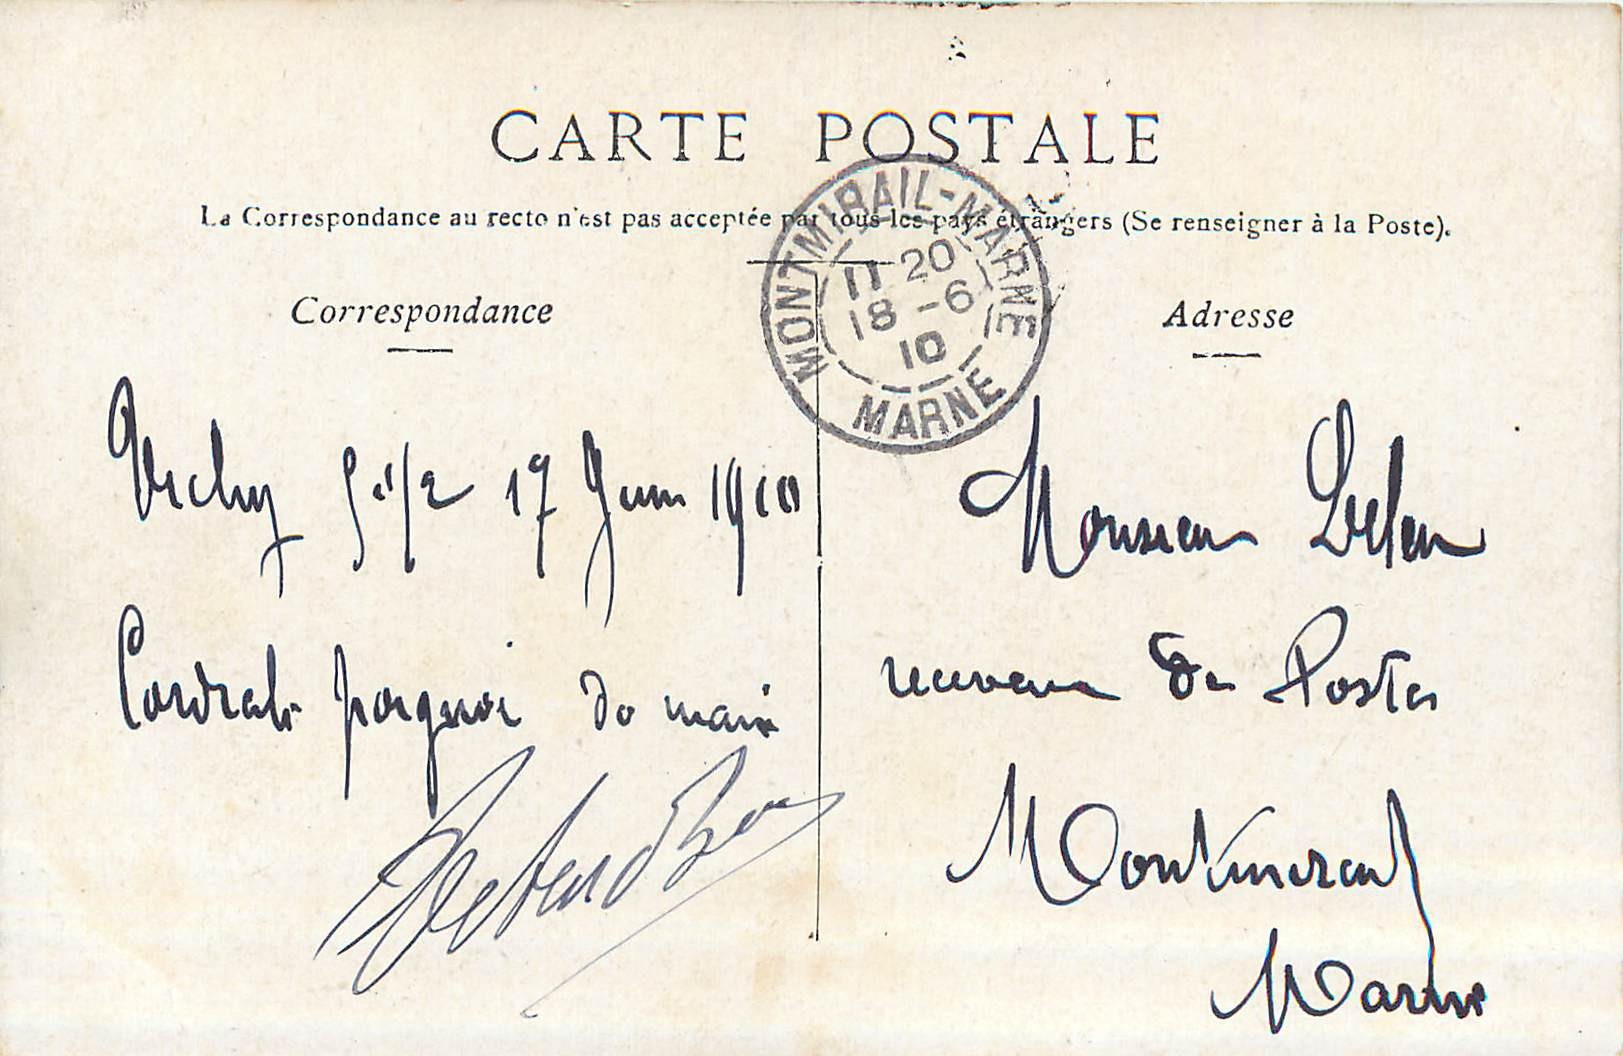 CARTE POSTALE
La Correspondance au recto n'est pas acceptée par tous les pays étrangers (Se renseigner à la Poste).
Correspondance
Adresse
MONTMIRAIL-MARNE
11 20
18 -6
10
MARNE
Vichy 17 Juin 1910
Cordiale poignée de main
Monsieur
receveur des Postes
Montmirail
Marne